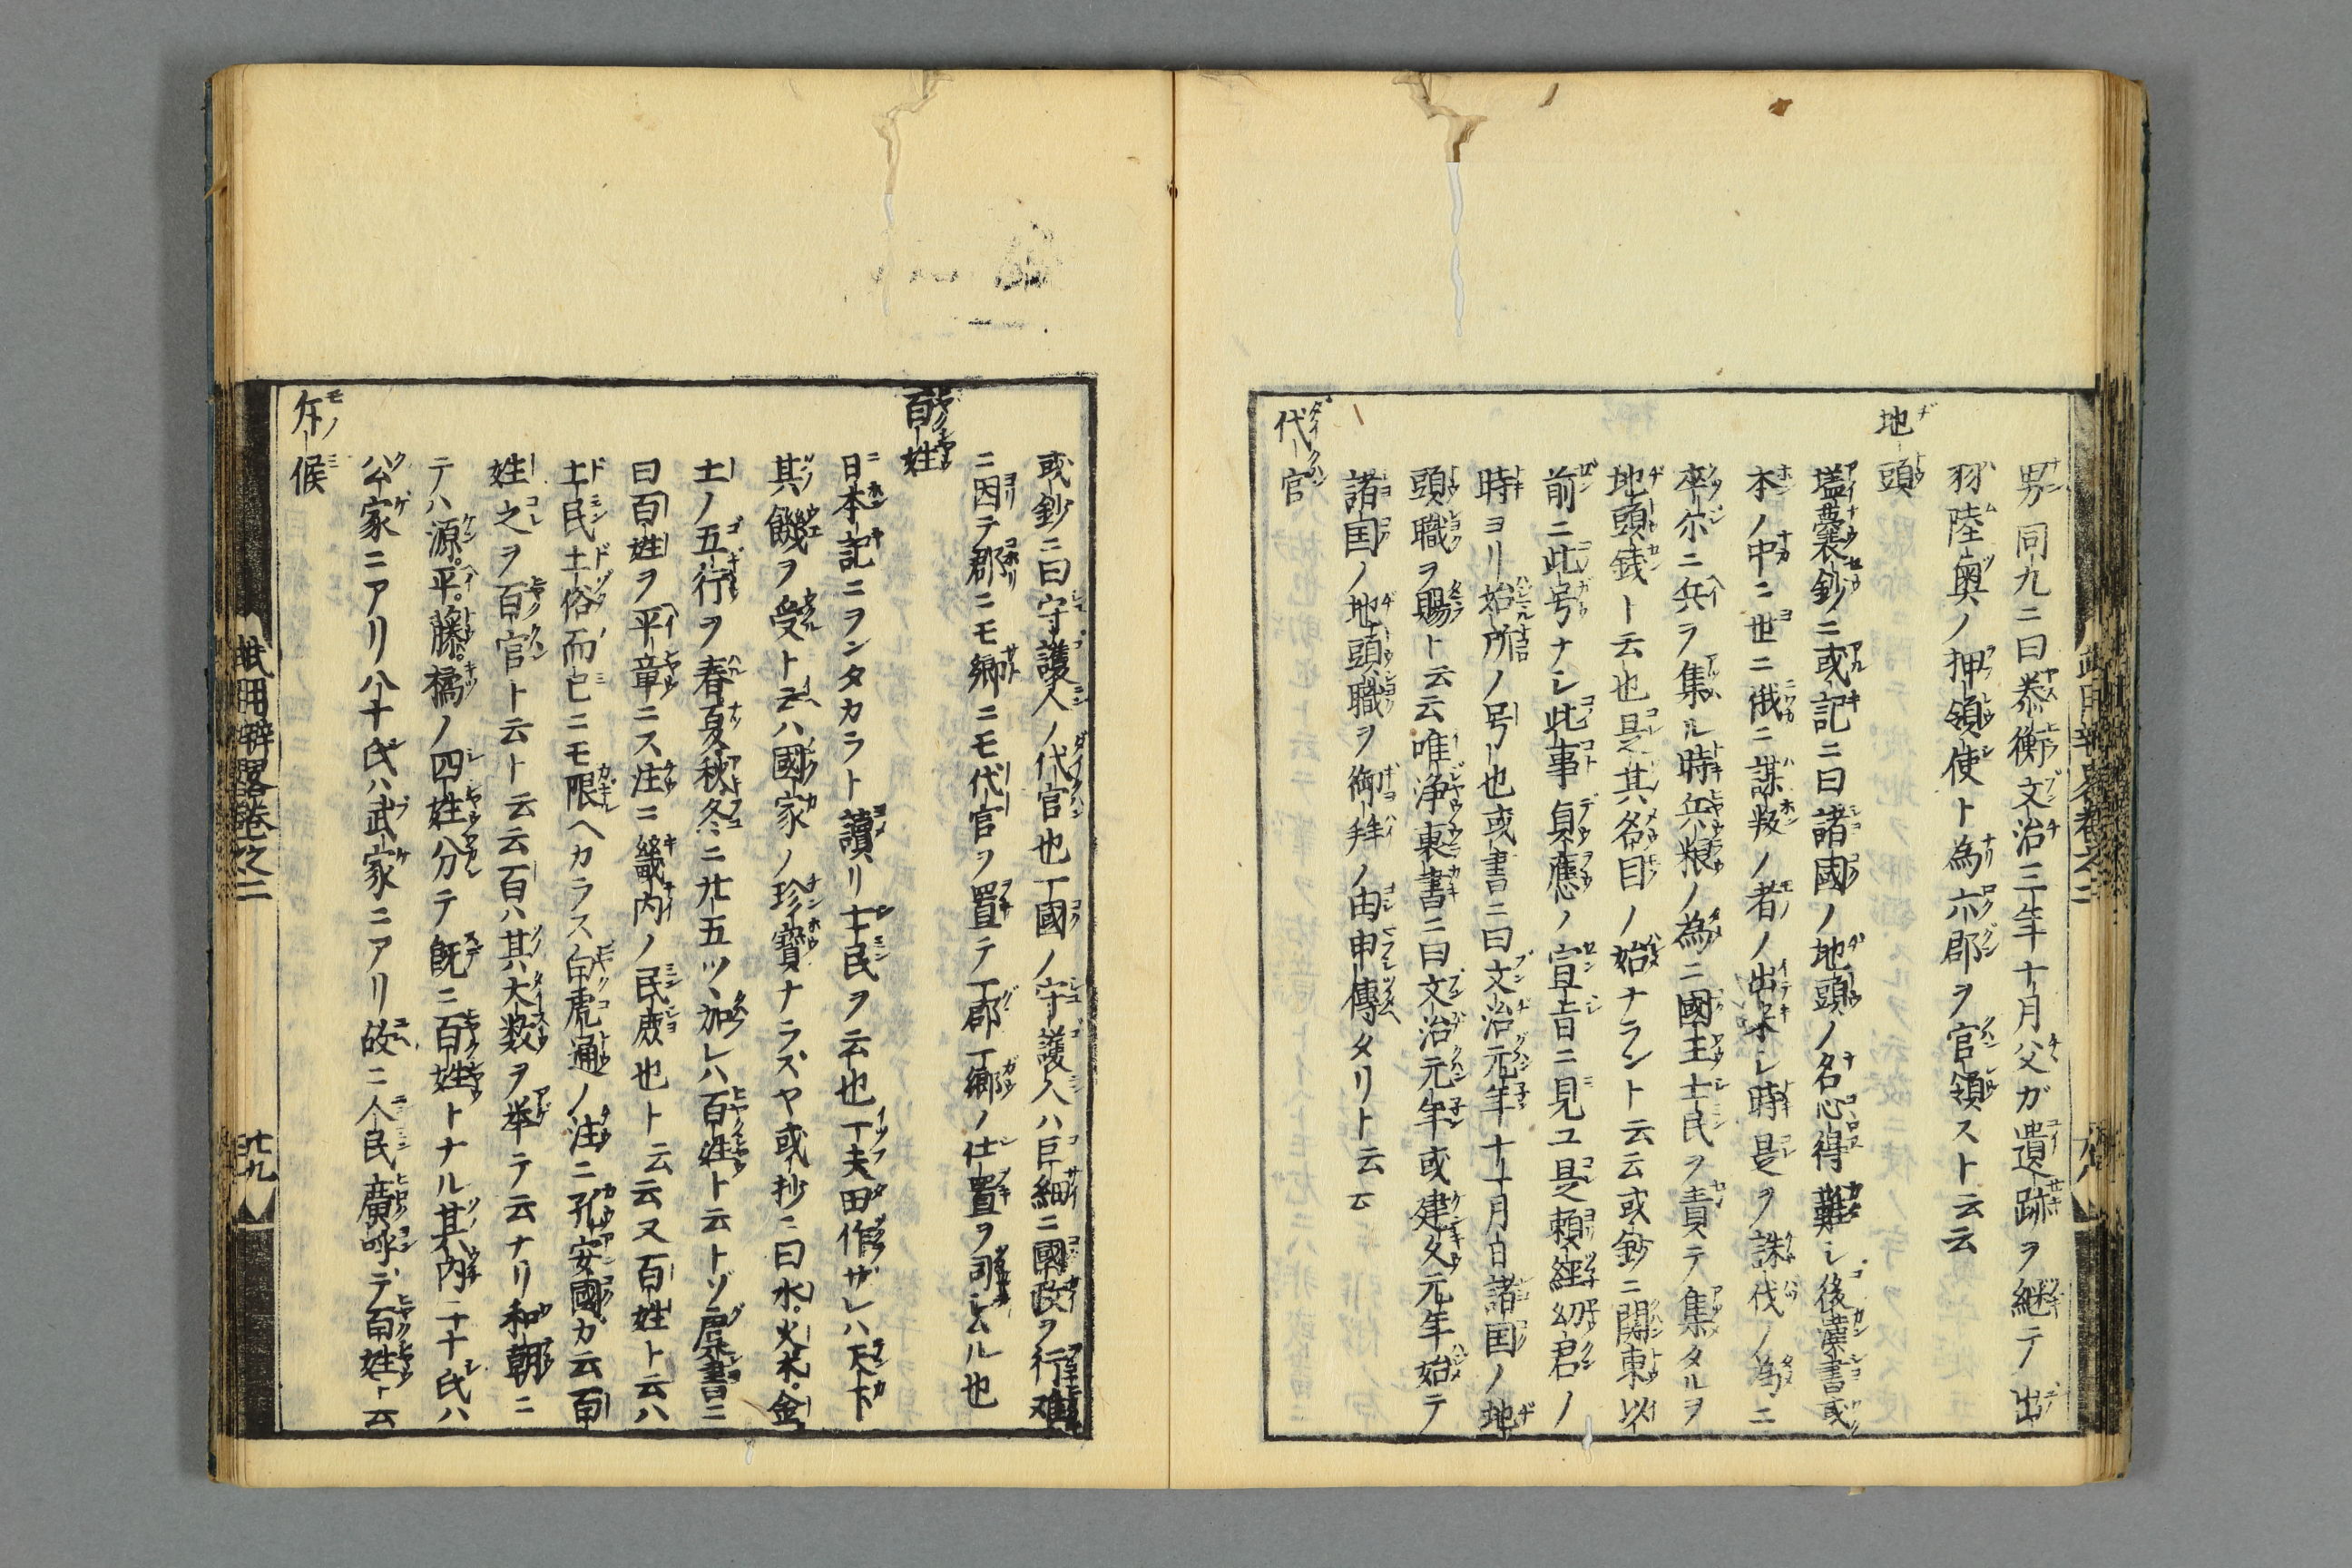 男同九ニ曰泰衡文治三年十月父ガ遺跡ヲ継テ出
羽陸奥ノ押領使ト為六郡ヲ官領スト云云
地頭
壒嚢鈔ニ或記ニ曰諸國ノ地頭ノ名心得難シ後漢書或
本ノ中ニ世ニ俄ニ謀叛ノ者ノ出来シ時是ヲ誅伐ノ為ニ
卒尓ニ兵ヲ集ル時兵粮ノ為ニ國王士民ヲ責テ集タルヲ
地頭銭ト云也是其名目ノ始ナラント云云或鈔ニ関東以
前ニ此号ナシ此事貞應ノ宣旨ニ見ユ是頼經幼君ノ
時ヨリ始所ノ号也或書ニ曰文治元年十一月白諸国ノ地
頭職ヲ賜ト云云唯浄裏書ニ曰文治元年或建久元年始テ
諸国ノ地頭職ヲ御拜ノ由申傳タリト云云
代官
或鈔ニ曰守護人ノ代官也一國ノ守護人ハ巨細ニ國政ヲ行難
ニ因テ郡ニモ郷ニモ代官ヲ置テ一郡一郷ノ仕置ヲ司シムル也
百姓
日本記ニヲンタカラト讀リ士民ヲ云也一夫田作ザレハ天下
其饑ヲ受ト云ハ國家ノ珍寶ナラズヤ或抄ニ曰水火木金
土ノ五行ヲ春夏秋冬ニ廿五ツヽ加レハ百姓ト云トゾ唐書ニ
曰百姓ヲ平章ニス注ニ畿内ノ民庶也ト云云又百姓ト云ハ
土民土俗而已ニモ限ヘカラス白虎通ノ注ニ孔安國カ云百
姓之ヲ百官ト云ト云云百ハ其大数ヲ举テ云ナリ和朝ニ
テハ源平藤橘ノ四姓分テ既ニ百姓トナル其内二十氏ハ
公家ニアリ八十氏ハ武家ニアリ故ニ人民廣呼デ百姓ト云
斥候
武用辨畧巻之二
廿九